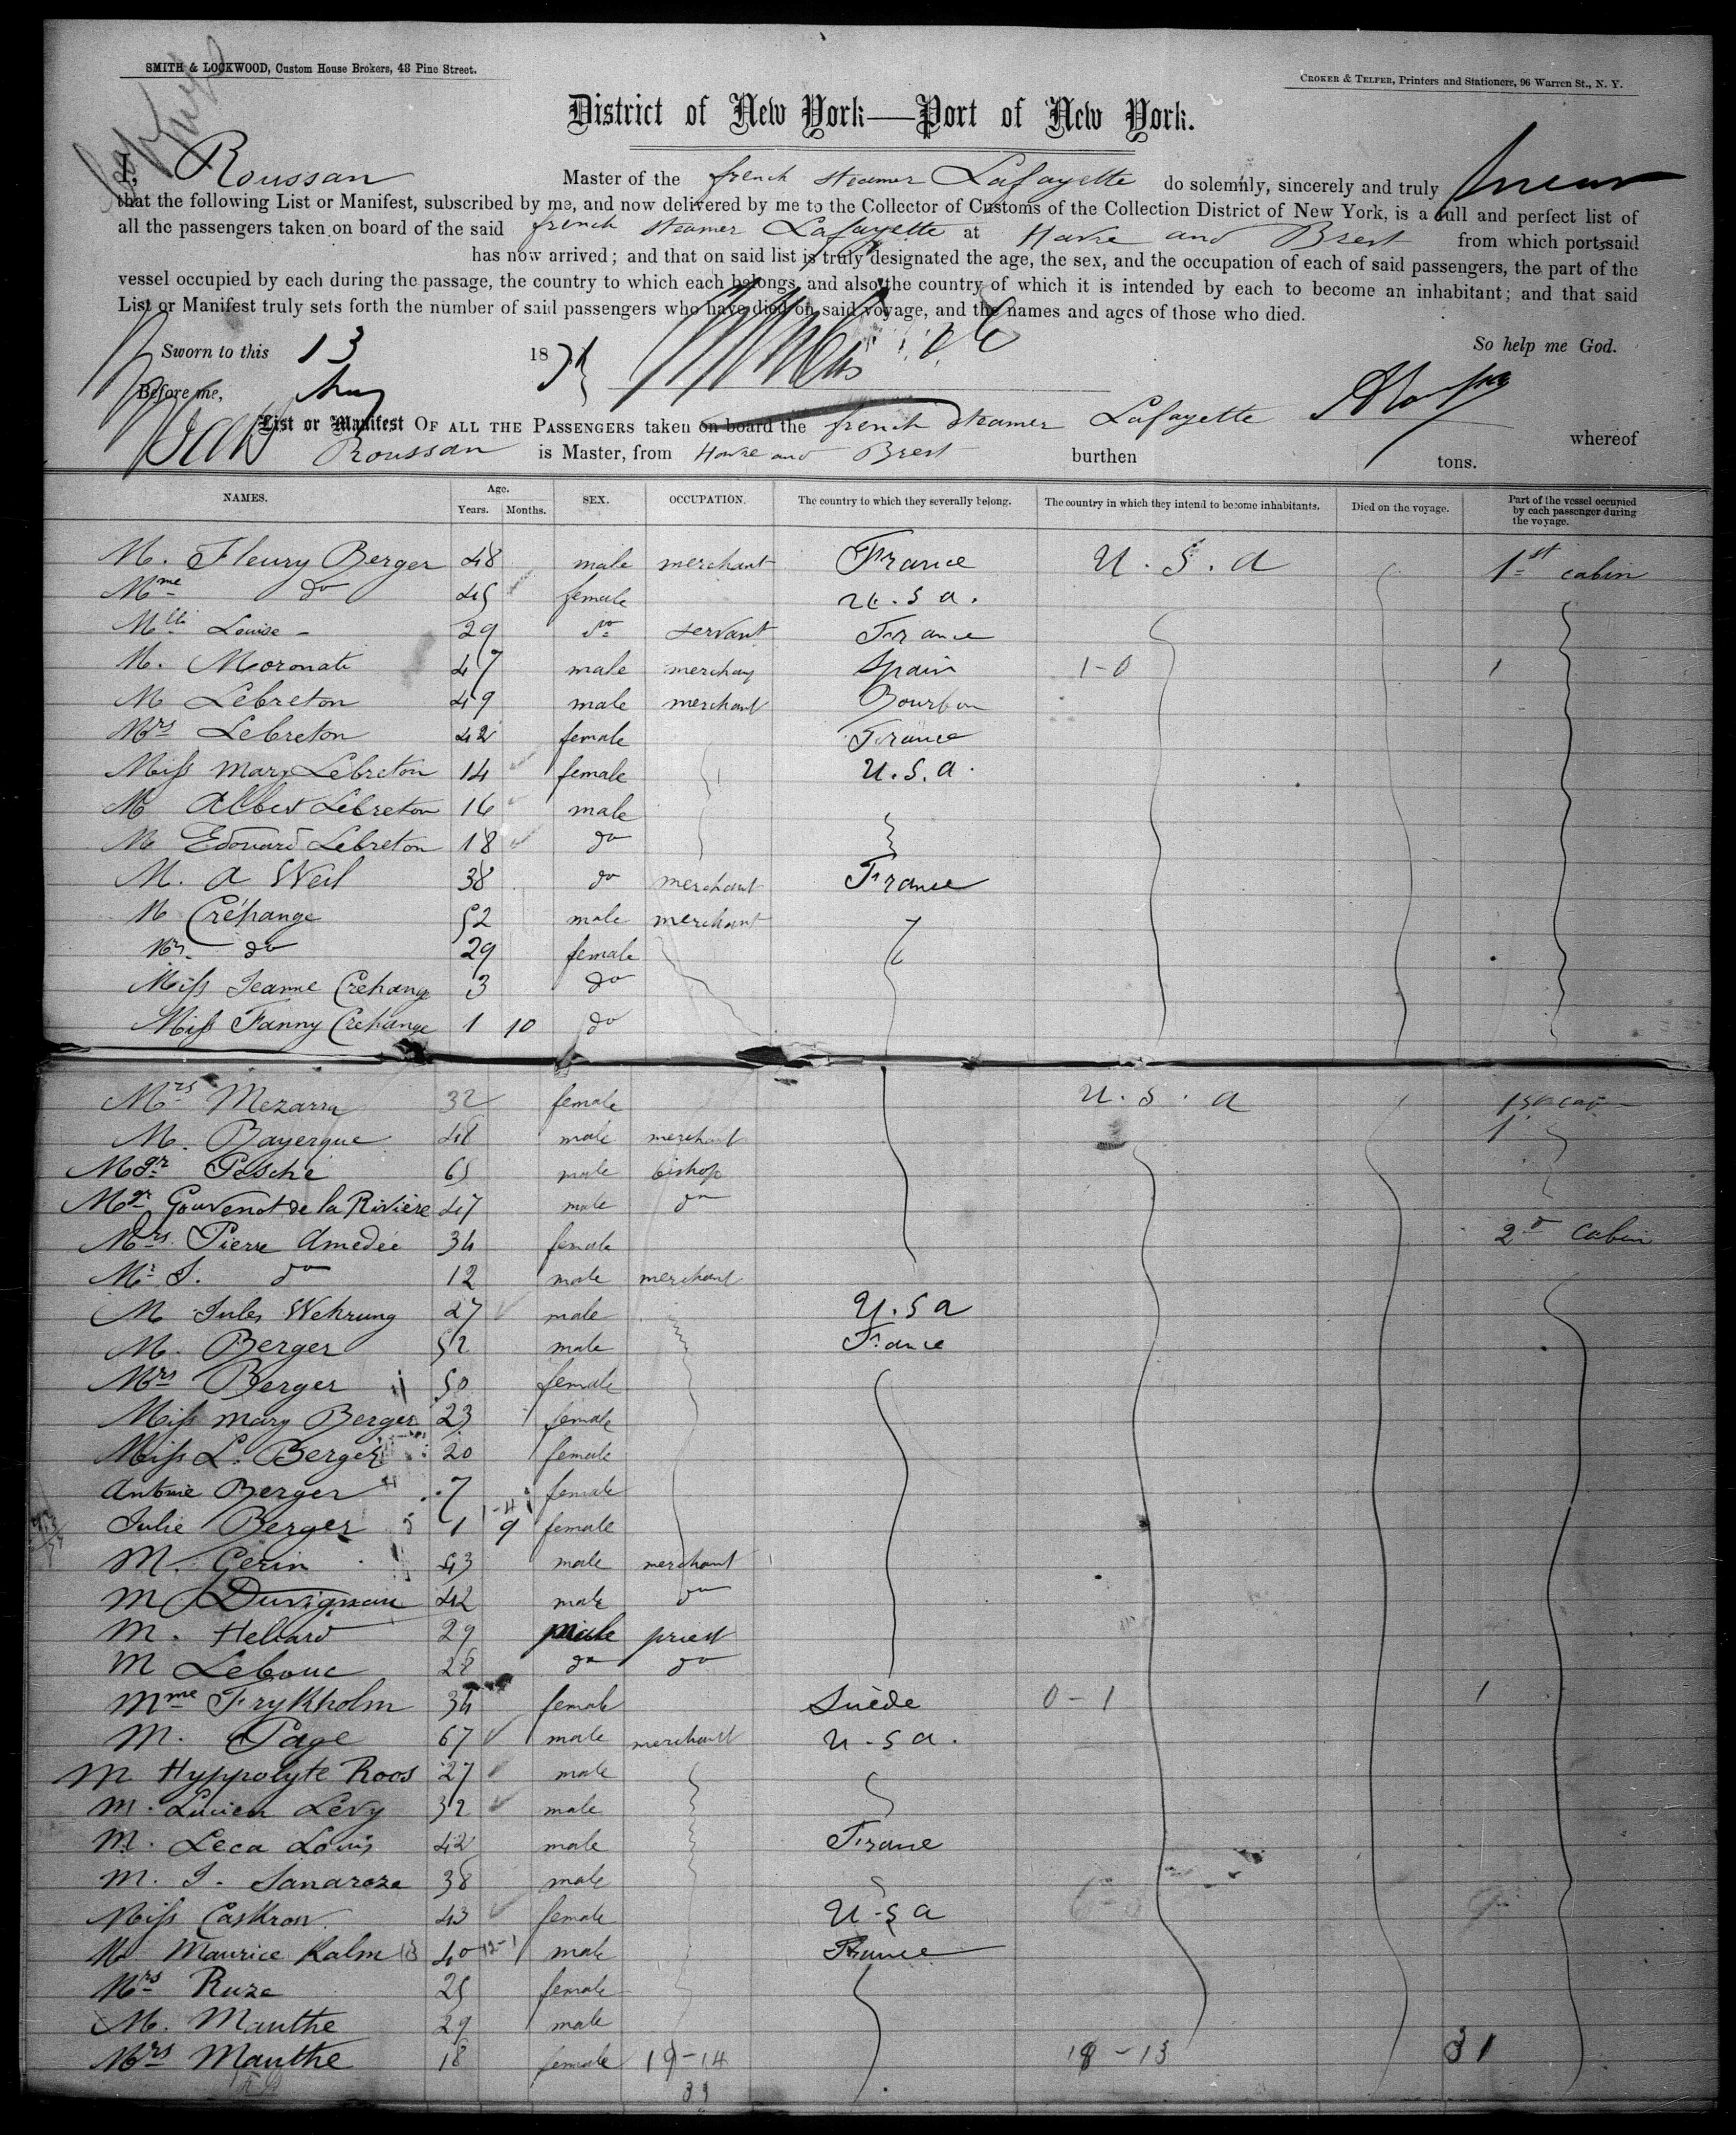 SMITH & LOCKWOOD, Custom House Brokers, 48 Pine Street.
CROKER & TELFER, Printers and Stationers, 96 Warren St., N. Y.
District of New York—Port of New York.
I, Roussan Master of the french steamer Lafayette do solemnly, sincerely and truly swear
that the following List or Manifest, subscribed by me, and now delivered by me to the Collector of Customs of the Collection District of New York, is a full and perfect list of
all the passengers taken on board of the said french steamer Lafayette at Havre and Brest from which port said
has now arrived; and that on said list is truly designated the age, the sex, and the occupation of each of said passengers, the part of the
vessel occupied by each during the passage, the country to which each belongs, and also the country of which it is intended by each to become an inhabitant; and that said
List or Manifest truly sets forth the number of said passengers who have died on said voyage, and the names and ages of those who died.
Sworn to this 13 18 So help me God.
Before me,
List or Manifest OF ALL THE PASSENGERS taken on board the french steamer Lafayette whereof
Roussan is Master, from Havre and Brest burthen tons.
NAMES. Age. Years. Months. SEX. OCCUPATION. The country to which they severally belong. The country in which they intend to become inhabitants. Died on the voyage. Part of the vessel occupied by each passenger during the voyage.
M. Fleury Berger 48 male merchant France U.S.a 1st cabin
Mme do 45 female U.S a.
Mlle Louise 29 do servant France
M. Moronati 47 male merchant Spain 1-0 1
M Lebreton 49 male merchant Bourbon
Mrs Lebreton 42 female France
Miss Mary Lebreton 14 female U.S.a.
M Albert Lebreton 16 male
M Edouard Lebreton 18 do
M. A Weil 38 do merchant France
M Créhange 52 male merchant
Mrs do 29 female
Miss Jeanne Crehange 3 do
Miss Fanny Crehange 1 10 do
Mrs Mezarra 32 female U.S.a 1st cab
M. Bayerque 48 male merchant 1
Mgr Pesche 65 male bishop
Mgr Gouvenot de la Rivière 47 male do
Mrs Pierre Amedée 34 female 2d Cabin
Mr J. do 12 male merchant
M Jules Wehrung 27 male U.S a
M. Berger 52 male France
Mrs Berger 50 female
Miss Mary Berger 23 female
Miss L. Berger 20 female
Antonie Berger 7 female
Julie Berger 1 9 female
M. Gerin 43 male merchant
M Duvignau 42 male do
M. Heliard 29 male priest
M Lebouc 28 do do
Mme Frykholm 34 female Suède 0-1 1
M. Page 67 male merchant U.S a.
M Hyppolyte Roos 27 male
M. Lucien Levy 32 male
M. Leca Louis 42 male France
M. J. Sanaroze 38 male
Miss Caskron 43 female U.S a
M Maurice Kalm 40 male France
Mrs Ruze 25 female
M. Mauthe 29 male
Mrs Mauthe 18 female 19-14 18-13 31